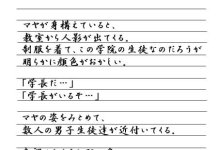 マヤが身構えていると、
教室から人影が出てくる。
制服を着て、この学院の生徒なのだろうが
明らかに顔色がおかしい。
「学長だ…」
「学長がいるぞ…」
マヤの姿をみとめて、
数人の男子生徒達が近付いてくる。